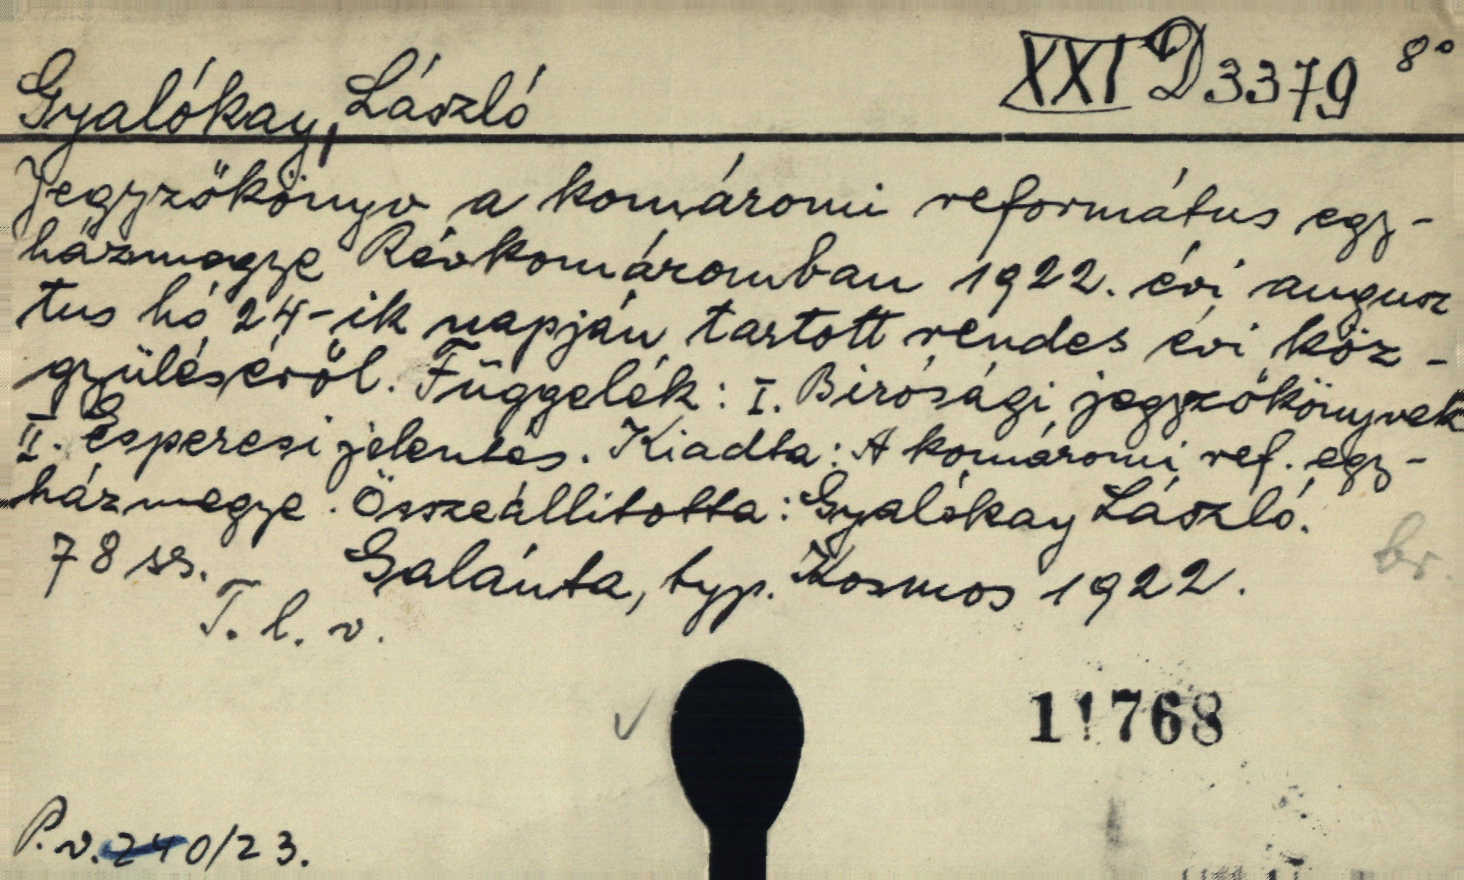 XXI D 3379 8°
Gyalókay, László
Jegyzőkönyv a komáromi református egy-
házmegye Révkomáromban 1922. évi augusz
tus hó 24-ik napján tartott rendes évi köz-
gyüléséről. Függelék: I. Birósági jegyzőkönyvek
II. Esperesi jelentés. Kiadta: A komáromi ref. egy-
házmegye. Összeállitotta: Gyalókay László.
br.
78 ss. Galánta, typ. Kosmos 1922.
T. l. v.
11768
P. v. 240/23.